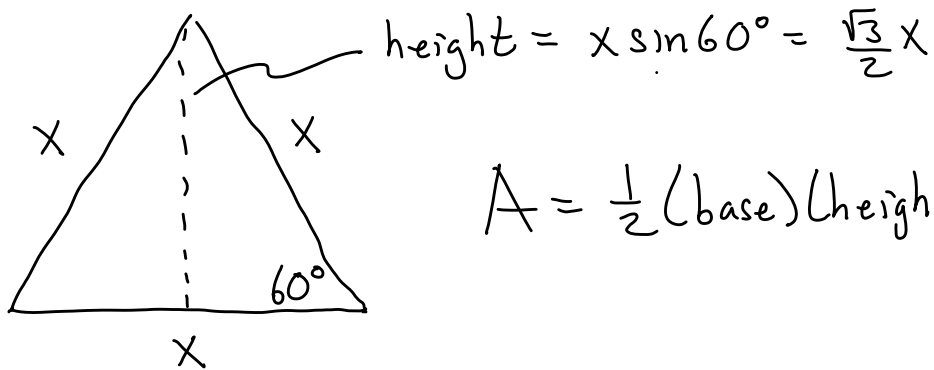 height = x sin60° = √3/2 x
x
x
A = 1/2 (base)(heigh
60°
x